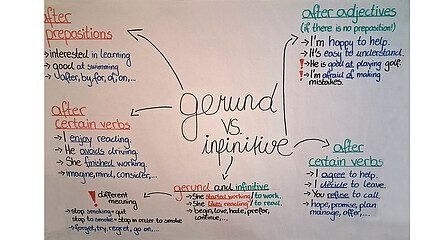 after
prepositions
→interested in learning
→good at swimming
→after, by, for, of, on,...
after
certain verbs
→I enjoy reading.
→He avoids driving.
→She finished working.
→imagine, mind, consider,...
gerund
vs.
infinitive
after adjectives
(if there is no preposition!)
→I'm happy to help.
→It's easy to understand.
!→He is good at playing golf.
!→I'm afraid of making
mistakes.
after
certain verbs
→I agree to help.
→I decide to leave.
→You refuse to call.
→hope, promise, plan
manage, offer,...
gerund and infinitive
→She started working / to work.
→She likes reading / to read.
→begin, love, hate, prefer,
continue,...
! different
meaning
→stop smoking = quit
stop to smoke = stop in order to smoke
→forget, try, regret, go on,...